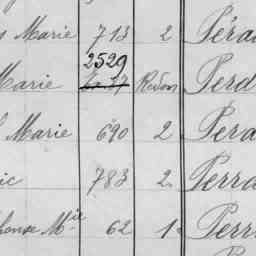 s Marie 713 2 Péra
2529
Marie Redon Perd
Marie 690 2 Pera
ic 783 2 Perra
phonse Mie 62 1 Perr